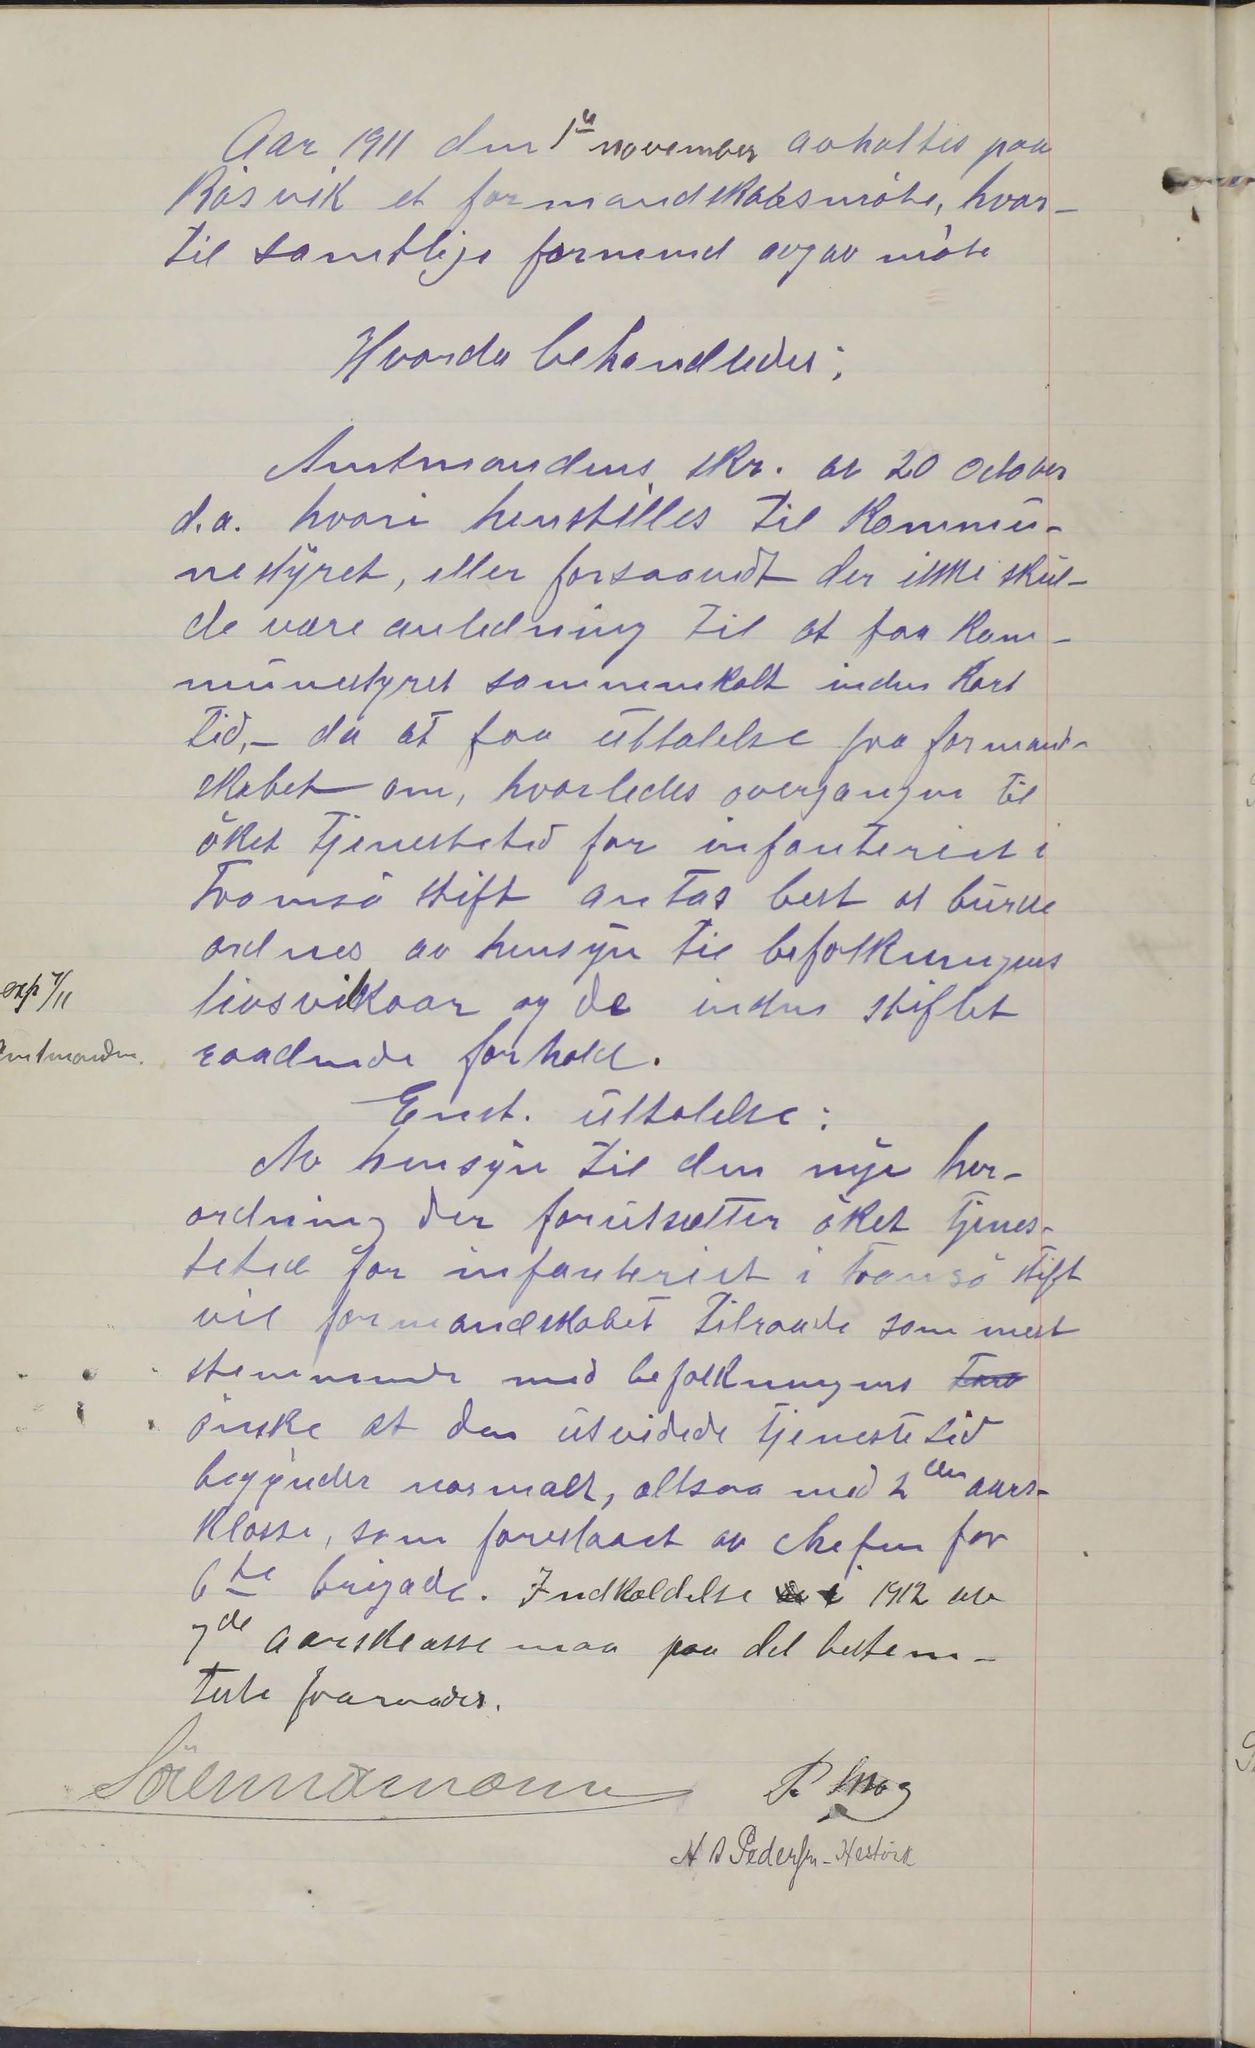 Aar 1911 den 1ste november avholtes paa
Røsvik et formandskabsmøte, hvor-
til samtlige formænd avgav møte
Hvorda behandledes:
Amtmandens skr. av 20 october
d.a. hvori henstilles til kommu-
nestyret, eller forsaavidt der ikke skul-
de være anledning til at faa kom-
munestyret sammenkalt inden kort
tid, - da at faa uttalelse fra formand-
skabet om, hvorledes overgangen til
øket tjenestetid for infanteriet i
Tromsø stift antas best at burde
ordnes av hensyn til befolkningens
livsvilkaar og de inden stiftet
raadende forhold.
exp 7/11
Amtmanden.
Enst. uttalelse:
Av hensyn til den nye hær-
ordning der forutsætter øket tjenes-
tetid for infanteriet i Tromsø stift
vil formandskabet tilraade som mest
stemmende med befolkningens
ønske at den utvidede tjenestetid
begynder normalt, altsaa med 2den aars-
klasse, som foreslaaet av chefen for
6te brigade. Indkaldelse i 1912 av
7de aarsklasse maa paa det bestem-
teste fraraades.
P. Skog
H A Pedersen - Hestvik